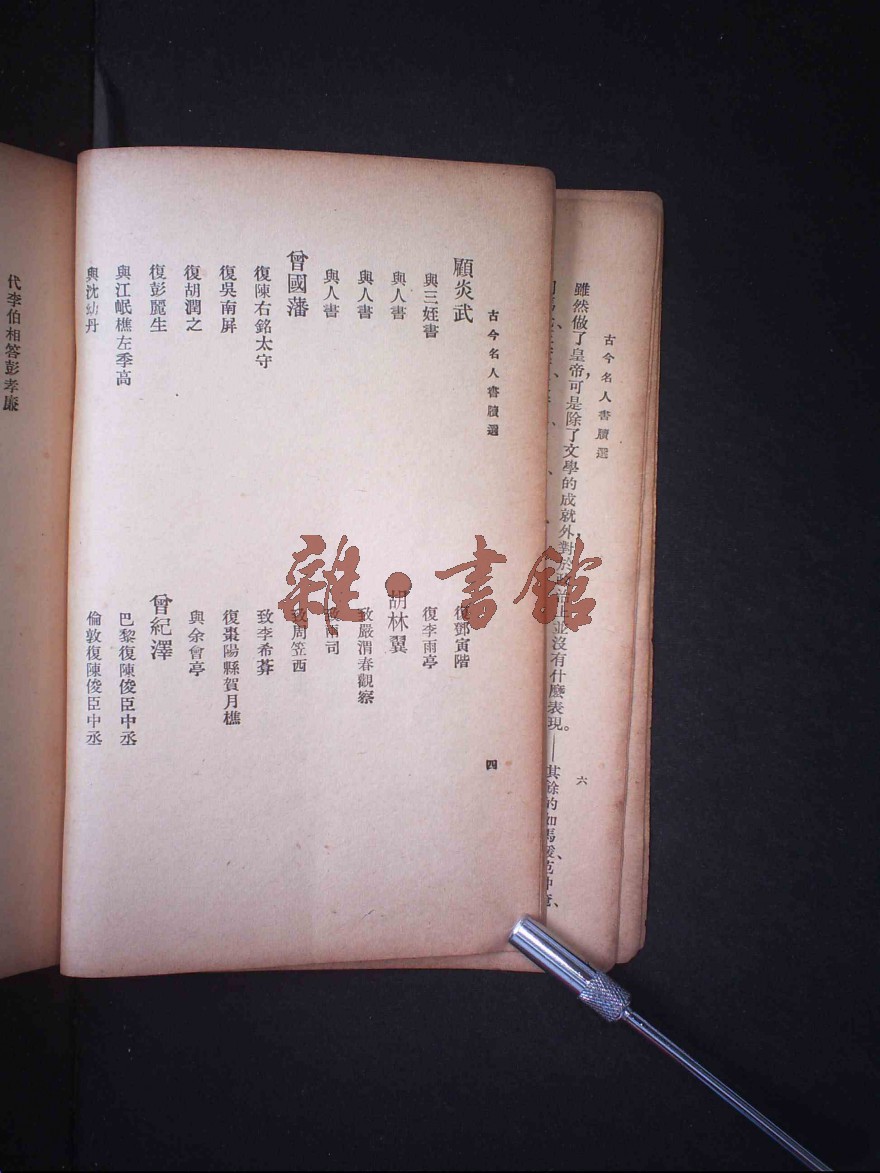 古今名人書牘選
六
雖然做了皇帝，可是除了文學的成就外，對於政治上並沒有什麼表現。——其餘的如馬援、范仲淹、
古今名人書牘選
四
顧炎武
與三姪書
與人書
與人書
與人書
曾國藩
復陳右銘太守
復吳南屏
復胡潤之
復彭麗生
與江岷樵左季高
與沈幼丹
復鄧寅階
復李雨亭
胡林翼
致嚴渭春觀察
致兩司
致周笠西
致李希菶
復棗陽縣賀月樵
與余會亭
曾紀澤
巴黎復陳俊臣中丞
倫敦復陳俊臣中丞
代李伯相答彭孝廉
雜·書館